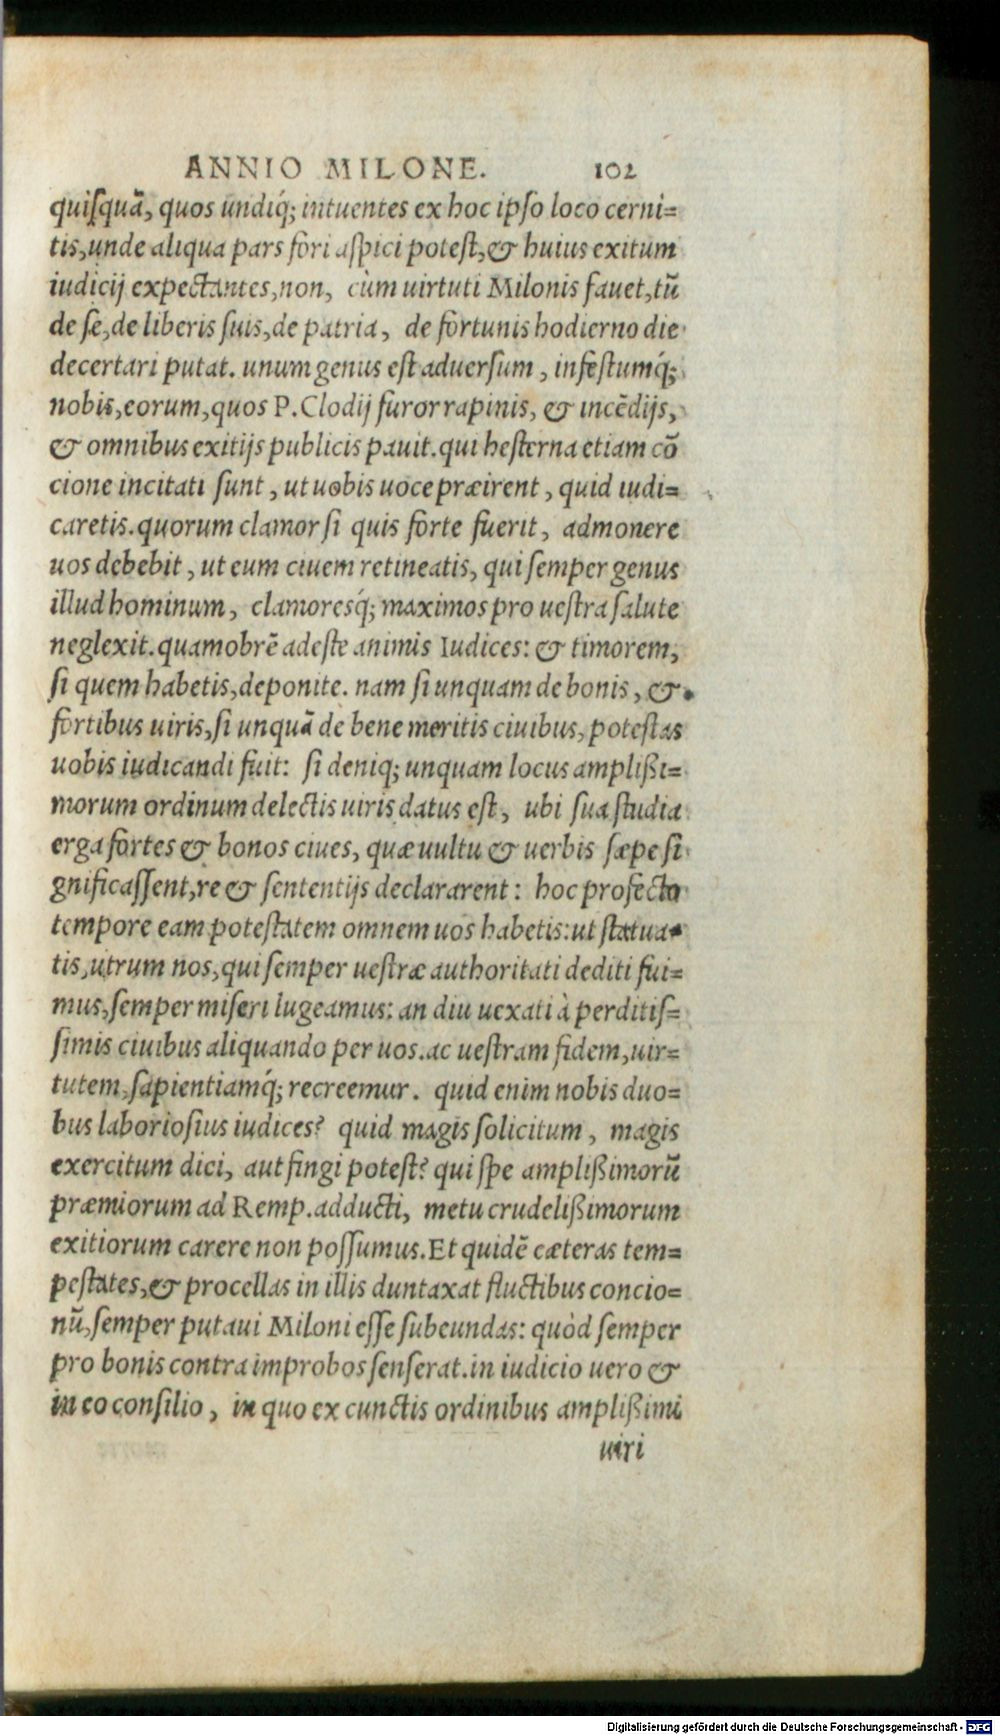 ANNIO MILONE. 102
quiſquã, quos undiq́; intuentes ex hoc ipſo loco cerni=
tis, unde aliqua pars fori aſpici poteſt, & huius exitum
iudicij expectantes, non, cùm uirtuti Milonis fauet, tũ
de ſe, de liberis ſuis, de patria, de fortunis hodierno die
decertari putat. unum genus eſt aduerſum, infeſtumq́;
nobis, eorum, quos P. Clodij furor rapinis, & incẽdijs,
& omnibus exitijs publicis pauit. qui heſterna etiam cõ
cione incitati ſunt, ut uobis uoce præirent, quid iudi=
caretis. quorum clamor ſi quis forte fuerit, admonere
uos debebit, ut eum ciuem retineatis, qui ſemper genus
illud hominum, clamoresq́; maximos pro ueſtra ſalute
neglexit. quamobrẽ adeſte animis Iudices: & timorem,
ſi quem habetis, deponite. nam ſi unquam de bonis, &
fortibus uiris, ſi unquã de bene meritis ciuibus, poteſtas
uobis iudicandi fuit: ſi deniq; unquam locus amplißi=
morum ordinum delectis uiris datus eſt, ubi ſua ſtudia
erga fortes & bonos ciues, quæ uultu & uerbis ſæpe ſi
gnificaſſent, re & ſententijs declararent: hoc profecto
tempore eam poteſtatem omnem uos habetis: ut ſtatua=
tis, utrum nos, qui ſemper ueſtræ authoritati dediti fui=
mus, ſemper miſeri lugeamus: an diu uexati à perditiſ=
ſimis ciuibus aliquando per uos. ac ueſtram fidem, uir=
tutem, ſapientiamq́; recreemur. quid enim nobis duo=
bus laborioſius iudices? quid magis ſolicitum, magis
exercitum dici, aut fingi poteſt? qui ſpe amplißimorũ
præmiorum ad Remp. adducti, metu crudelißimorum
exitiorum carere non poſſumus. Et quidẽ cæteras tem=
peſtates, & procellas in illis duntaxat fluctibus concio=
nũ, ſemper putaui Miloni eſſe ſubeundas: quòd ſemper
pro bonis contra improbos ſenſerat. in iudicio uero &
in eo conſilio, in quo ex cunctis ordinibus amplißimi
uiri
Digitalisierung gefördert durch die Deutsche Forschungsgemeinschaft - DFG